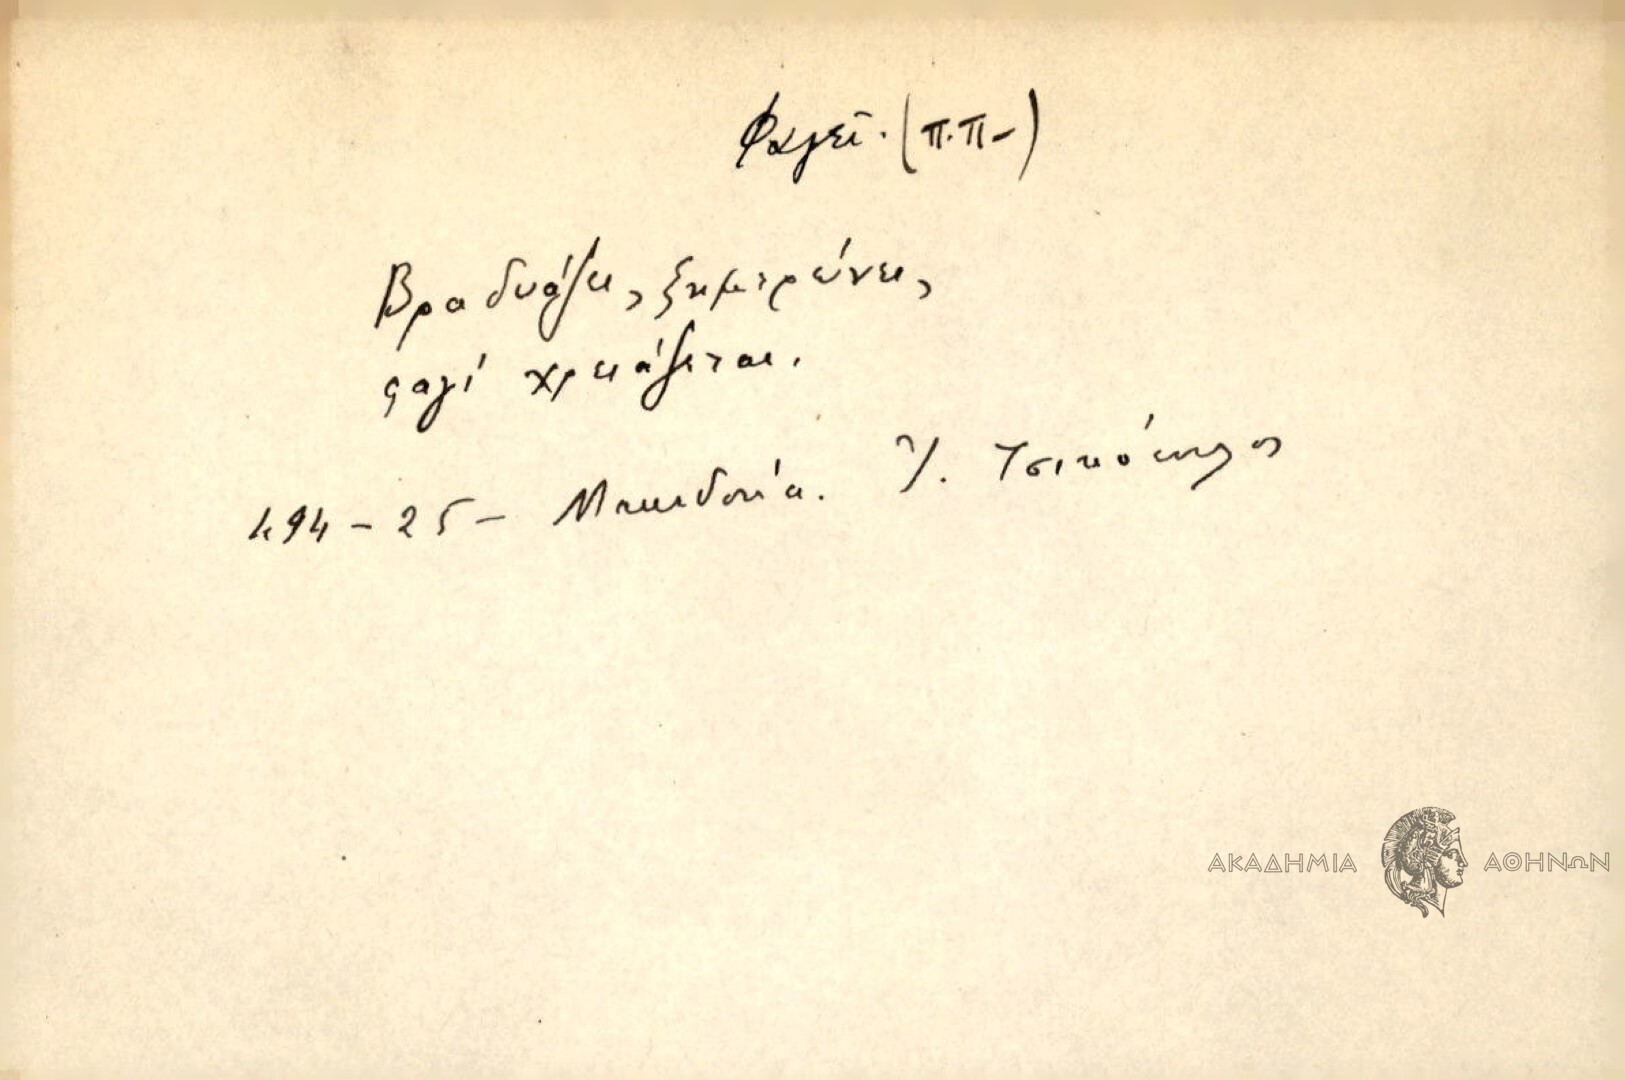 Φαγεῖ. (π.π.-)
Βραδυάζει, ξημερώνει,
φαγί χρειάζεται.
1.94 - 25 - Μακεδονία. Ἰ. Τσικόπουλος
ΑΚΑΔΗΜΙΑ ΑΘΗΝΩΝ